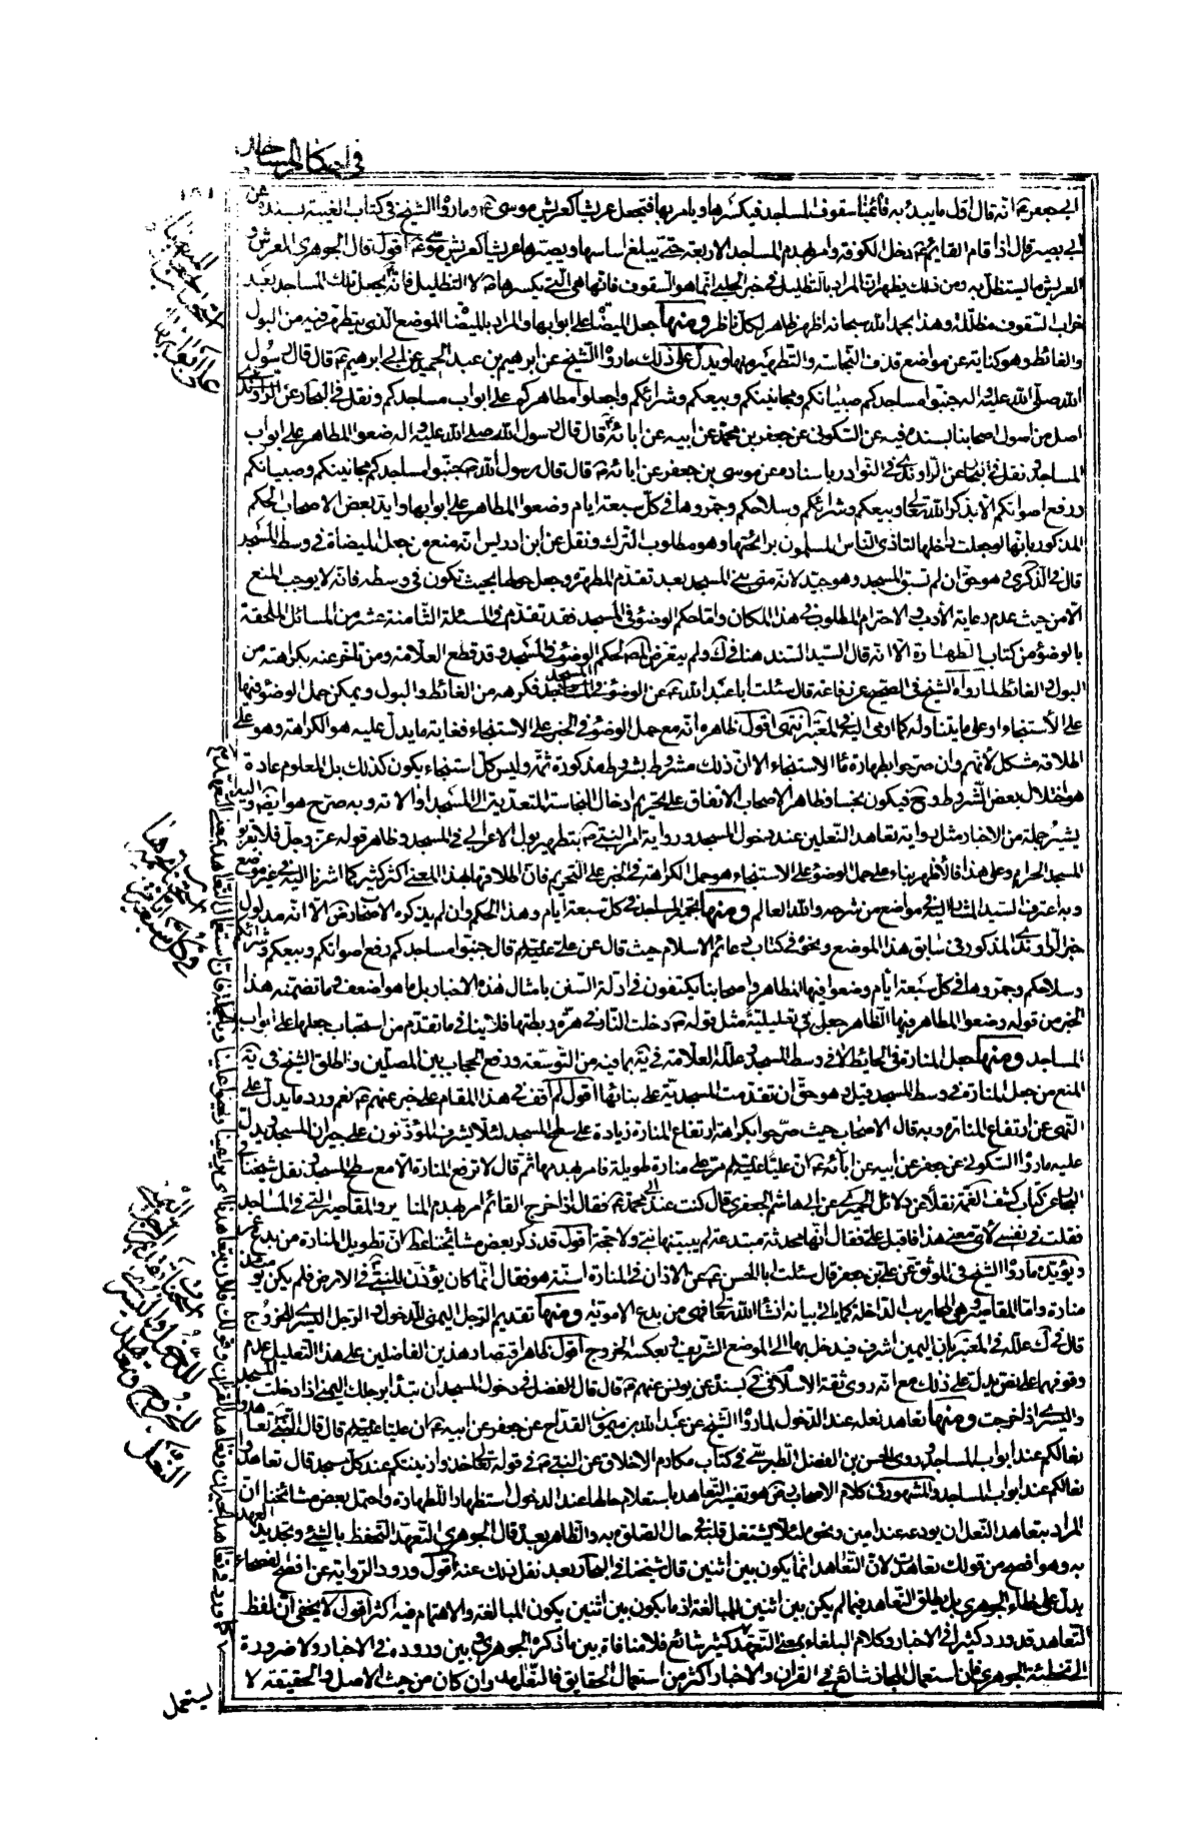 في احكام المساجد
ابي جعفر ع انه قال اول ما يبدء به قائمنا سقوف المساجد فيكسرها ويامر بها فتجعل عريشا كعريش موسى ع وما رواه الشيخ في كتاب الغيبة بسنده عن
ابي بصير قال اذا قام القايم ع دخل الكوفة وامر بهدم المساجد الاربعة حتى يبلغ اساسها ويصيرها عريشا كعريش موسى ع اقول قال الجوهري العرش و
العريش ما يستظل به ومن ذلك يظهر ان المراد بالتظليل في خبر الحلبي انما هو السقوف فانها هي التي يكسرها ع لا التظليل فانه يجعل تلك المساجد بعد
خراب السقوف مظللة وهذا بحمد الله سبحانه اظهر ظاهر لكل ناظر ومنها جعل الميضاة على ابوابها والمراد بالميضاة الموضع الذي يتطهر فيه من البول
والغائط وهو كناية عن مواضع قذف النجاسة والتطهير منها ويدل على ذلك ما رواه الشيخ عن ابرهيم بن عبد الحميد عن ابي ابرهيم ع قال قال رسول
الله صلى الله عليه واله جنبوا مساجدكم صبيانكم ومجانينكم وبيعكم وشرائكم واجعلوا مطاهركم على ابواب مساجدكم ونقل في البحار عن الراوندي
اصل من اصول اصحابنا بسنده فيه عن السكوني عن جعفر بن محمد عن ابيه عن ابائه ع قال قال رسول الله صلى الله عليه واله ضعوا المطاهر على ابواب
المساجد ونقل في البحار عن الراوندي في النوادر باسناده عن موسى بن جعفر عن ابائه ع قال قال رسول الله ص جنبوا مساجدكم مجانينكم وصبيانكم
ورفع اصواتكم الا بذكر الله تعالى وبيعكم وشرائكم وسلاحكم وجمروها في كل سبعة ايام وضعوا المطاهر على ابوابها وايد بعض الاصحاب الحكم
المذكور بانها لو جعلت داخلها لتاذى الناس المسلمون برائحتها وهو مطلوب الترك ونقل عن ابن ادريس انه منع من جعل الميضاة في وسط المسجد
قال في الذكرى وهو حق ان لم تسبق المسجد وهو جيد لانه متى بني المسجد بعد تقدم المطهرة وجعل حولها بحيث تكون في وسطه فانه لا يوجب المنع
الا من حيث عدم رعاية الادب والاحترام المطلوب في هذا المكان واما حكم الوضوء في المسجد فقد تقدم في المسئلة الثامنة عشر من المسائل الملحقة
بالوضوء من كتاب الطهارة الا انه قال السيد السند هنا في ك ولم يتعرض المص لحكم الوضوء في المسجد وقد قطع العلامة ومن تاخر عنه بكراهته من
البول والغائط لما رواه الشيخ في الصحيح عن رفاعة قال سئلت ابا عبد الله ع عن الوضوء في المسجد فكرهه من الغائط والبول ويمكن حمل الوضوء فيها
على الاستنجاء او على ما يتناوله كما اومى اليه في المعتبر انتهى اقول ظاهره انه مع حمل الوضوء في الخبر على الاستنجاء فغاية ما يدل عليه هو الكراهة وهو على
اطلاقه مشكل لانهم وان صرحوا بطهارة ماء الاستنجاء الا ان ذلك مشروط بشروط مذكورة ثمة وليس كل استنجاء يكون كذلك بل المعلوم عادة
هو اختلال بعض الشروط وح فيكون نجسا وظاهر الاصحاب الاتفاق على تحريم ادخال النجاسة المتعدية الى المسجد او الاته وبه صرح هو ايضا واليه
يشير جملة من الاخبار مثل رواية تعاهد النعلين عند دخول المسجد ورواية امر النبي ص بتطهير بول الاعرابي في المسجد وظاهر قوله عز وجل فلا يقربوا
المسجد الحرام وعلى هذا فالاظهر بناء على حمل الوضوء على الاستنجاء هو حمل الكراهة في الخبر على التحريم فان اطلاقها بهذا المعنى اكثر كثير كما اشرنا اليه في غير موضع
وبه اعترف السيد المشار اليه في مواضع من شرحه والله العالم ومنها تجمير المساجد في كل سبعة ايام وهذا الحكم وان لم يذكره الاصحاب رض الا انه مدلول
خبر الراوندي المذكور في سابق هذا الموضع ونحوه في كتاب دعائم الاسلام حيث قال عن علي عليه السلام قال جنبوا مساجدكم رفع اصواتكم وبيعكم وشرائكم
وسلاحكم وجمروها في كل سبعة ايام وضعوا فيها المطاهر واصحابنا يكتفون في ادلة السنن بامثال هذه الاخبار بل ما هو اضعف وما تضمنه هذا
الخبر من قوله وضعوا المطاهر فيها الظاهر جعل في تعليلية مثل قوله ص دخلت النار في هرة ربطتها فلا ينافي ما تقدم من استحباب جعلها على ابواب
المساجد ومنها جعل المنارة في الحائط لا في وسط المسجد وعلله العلامة في يه بما فيه من التوسعة ورفع الحجاب بين المصلين واطلق الشيخ في يه
المنع من جعل المنارة في وسط المسجد قيل وهو حق ان تقدمت المسجدية على بنائها اقول لم اقف في هذا المقام على خبر عنهم ع نعم ورد ما يدل على
النهي عن ارتفاع المنارة وبه قال الاصحاب حيث صرحوا بكراهة ارتفاع المنارة زيادة على سطح المسجد لئلا يشرف المؤذنون على جيران المسجد ويدل
عليه ما رواه السكوني عن جعفر عن ابيه عن ابائه ع ان عليا عليه السلام مر على منارة طويلة فامر بهدمها ثم قال لا ترفع المنارة الا مع سطح المسجد ونقل شيخنا في
البحار عن كتاب كشف الغمة نقلا عن دلائل الحميري عن ابي هاشم الجعفري قال كنت عند ابي محمد ع فقال اذا خرج القائم امر بهدم المناير والمقاصير التي في المساجد
فقلت في نفسي لاي معنى هذا فاقبل علي فقال انها محدثة مبتدعة لم يبنها نبي ولا حجة اقول قد ذكر بعض مشائخنا عطر ان تطويل المنارة من بدع عمر
ويؤيده ما رواه الشيخ في الموثق عن علي بن جعفر قال سئلت ابا الحسن ع عن الاذان في المنارة اسنة هو فقال انما كان يؤذن للنبي ص في الارض فلم يكن يومئذ
منارة واما المقاصير وهي المحاريب الداخلة كما ياتي بيانه انشاء الله تعالى فهي من بدع الاموية ومنها تقديم الرجل اليمنى للدخول والرجل اليسرى للخروج
قال في ك علله في المعتبر بان اليمين اشرف فيدخل بها الى الموضع الشريف وبعكسه الخروج اقول ظاهر اقتصار هذين الفاضلين على هذا التعليل عدم
وقوفهما على نص يدل على ذلك مع انه روى ثقة الاسلام في في بسنده عن يونس عنهم ع قال قال الفضل في دخول المسجد ان تبتدا برجلك اليمنى اذا دخلت
واليسرى اذا خرجت ومنها تعاهد نعله عند الدخول لما رواه الشيخ عن عبد الله بن ميمون القداح عن جعفر عن ابيه ع ان عليا عليه السلام قال قال النبي ص تعاهدوا
نعالكم عند ابواب المساجد وروى الحسن بن الفضل الطبرسي في كتاب مكارم الاخلاق عن النبي ص في قوله تعالى خذوا زينتكم عند كل مسجد قال تعاهدوا
نعالكم عند ابواب المساجد والمشهور في كلام الاصحاب رض هو تفسير التعاهد باستعلام حالها عند الدخول استظهارا للطهارة واحتمل بعض مشائخنا ان
المراد بتعاهد النعل ان يودعه عند امين ونحوه لئلا يشتغل قلبه في حال الصلوة به والظاهر بعده قال الجوهري التعهد التحفظ بالشيء وتجديد العهد
به وهو افصح من قولك تعاهدت لان التعاهد انما يكون بين اثنين قال شيخنا في البحار بعد نقل ذلك عنه اقول ورود الرواية عن افصح الفصحاء
يدل على خطاء الجوهري بل يطلق التعاهد فيما لم يكن بين اثنين للمبالغة اذ ما يكون بين اثنين يكون المبالغة والاهتمام فيه اكثر اقول لا يخفى ان لفظ
التعاهد قد ورد كثيرا في الاخبار وكلام البلغاء بمعنى التعهد كثير شائع فلا منافاة بين ما ذكره الجوهري وبين وروده في الاخبار ولا ضرورة
الى تخطئة الجوهري فان استعمال المجاز شائع في القران والاخبار اكثر من استعمال الحقايق فالتعاهد وان كان من حيث الاصل والحقيقة لا
يستعمل